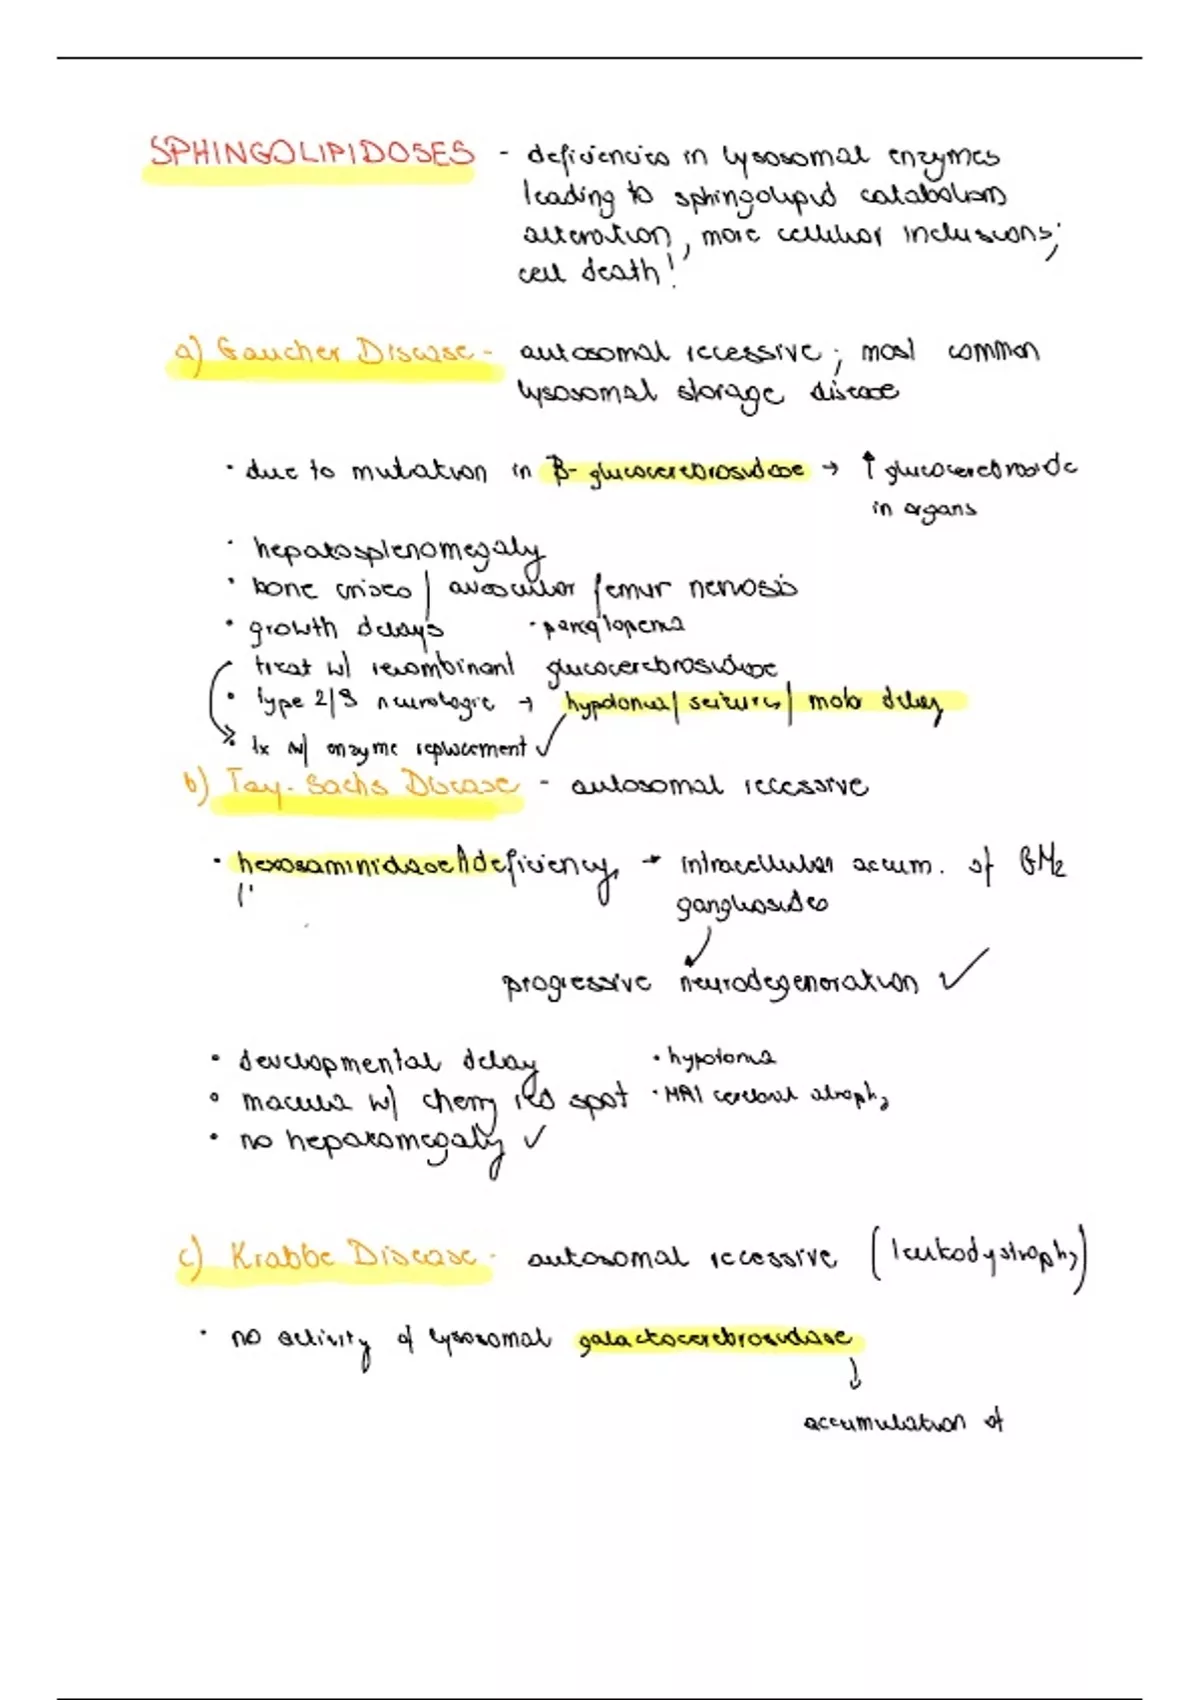 SPHINGOLIPIDOSES - deficiencies in lysosomal enzymes
leading to sphingolipid catabolism
alteration, more cellular inclusions;
cell death!
a) Gaucher Disease - autosomal recessive; most common
lysosomal storage disease
· due to mutation in β-glucocerebrosidase → ↑ glucocerebroside
in organs
· hepatosplenomegaly
· bone crises / avascular femur necrosis
· growth delays · pancytopenia
treat w/ recombinant glucocerebrosidase
· type 2/3 neurologic → hypotonia / seizures / motor delay
tx w/ enzyme replacement ✓
b) Tay-Sachs Disease - autosomal recessive
· hexosaminidase A deficiency → intracellular accum. of GM2
gangliosides
progressive neurodegeneration ✓
· developmental delay · hypotonia
· macula w/ cherry red spot · MRI cerebral atrophy
· no hepatomegaly ✓
c) Krabbe Disease - autosomal recessive (leukodystrophy)
· no activity of lysosomal galactocerebrosidase
↓
accumulation of